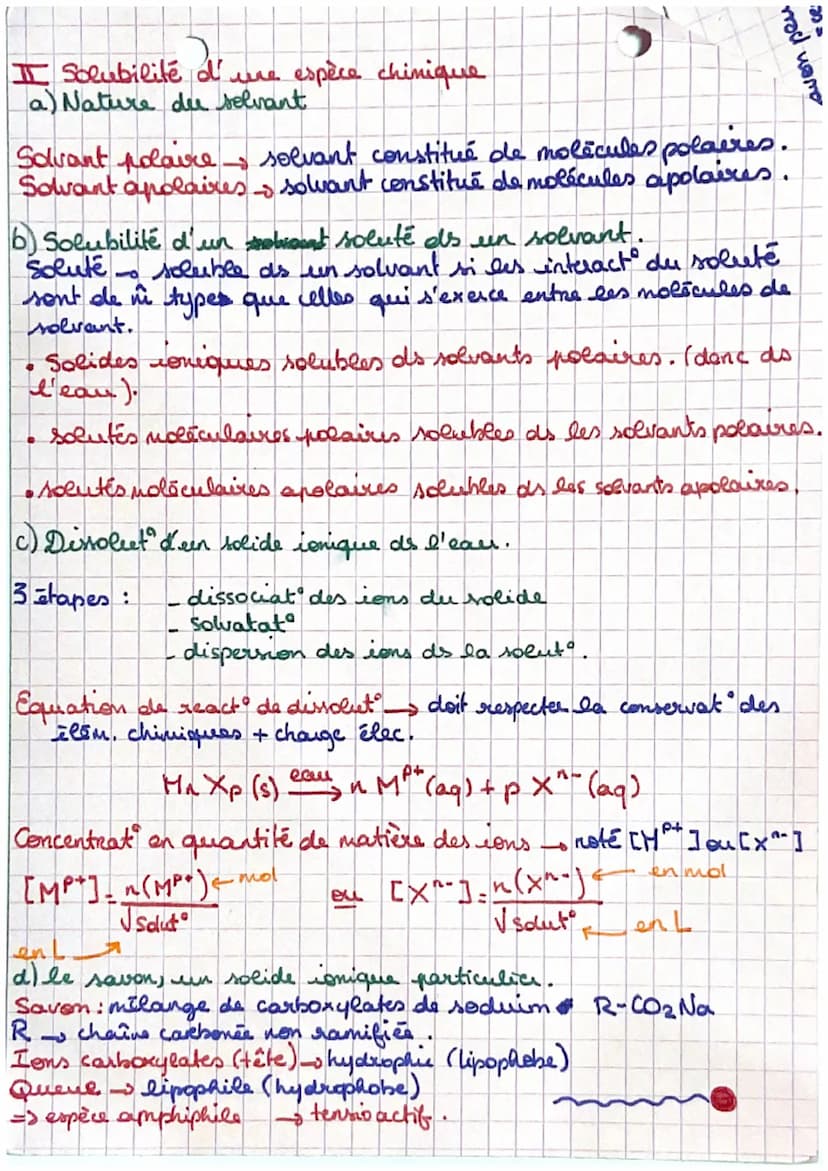 II Solubilité d'une espèce chimique
a) Nature du solvant
Solvant polaire → solvant constitué de molécules polaires.
Solvant apolaires → solvant constitué de molécules apolaires.
b) Solubilité d'un soluté ds un solvant.
Soluté → soluble ds un solvant si les interact° du soluté
sont de m̂ types que celles qui s'exerce entre les molécules de
solvant.
• Solides ioniques solubles ds solvants polaires. (donc ds
l'eau).
• solutés moléculaires polaires solubles ds les solvants polaires.
• solutés moléculaires apolaires solubles ds les solvants apolaires.
c) Dissolut° d'un solide ionique ds l'eau.
3 étapes : - dissociat° des ions du solide
- solvatat°
- dispersion des ions ds la solut°.
Equation de react° de dissolut° → doit respecter la conservat° des
élém. chimiques + charge élec.
Mn Xp (s) eau→ n M^p+ (aq) + p X^n- (aq)
Concentrat° en quantité de matière des ions → noté [M^p+] ou [X^n-]
[M^p+] = n(M^p+) ← mol ou [X^n-] = n(X^n-) ← en mol
V solut° V solut° ← en L
en L →
d) le savon, un solide ionique particulier.
Savon : mélange de carboxylates de soduim R-CO2Na
R → chaîne carbonée non ramifiée.
Ions carboxylates (tête) → hydrophie (lipophobe)
Queue → lipophile (hydrophobe)
=> espèce amphiphile → tensioactif.